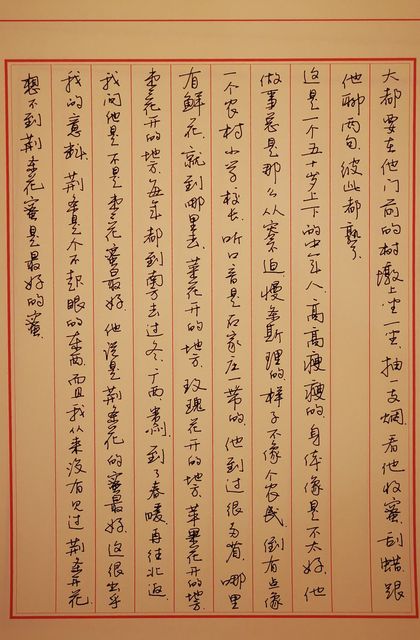 大都要在他门前的树墩上坐一坐,抽一支烟,看他收蜜,刮蜡,跟
他聊两句,彼此都熟了。
这是一个五十岁上下的中年人,高高瘦瘦的,身体像是不太好,他
做事总是那么从容不迫,慢条斯理的,样子不像个农民,倒有点像
一个农村小学校长。听口音,是石家庄一带的。他到过很多省。哪里
有鲜花,就到哪里去。菜花开的地方,玫瑰花开的地方,苹果花开的地方,
枣花开的地方。每年都到南方去过冬,广西,贵州。到了春暖,再往北返。
我问他是不是枣花蜜最好,他说是荆条花的蜜最好。这很出乎
我的意料。荆条是个不起眼的东西,而且我从来没有见过荆条开花,
想不到荆条花蜜是最好的蜜。